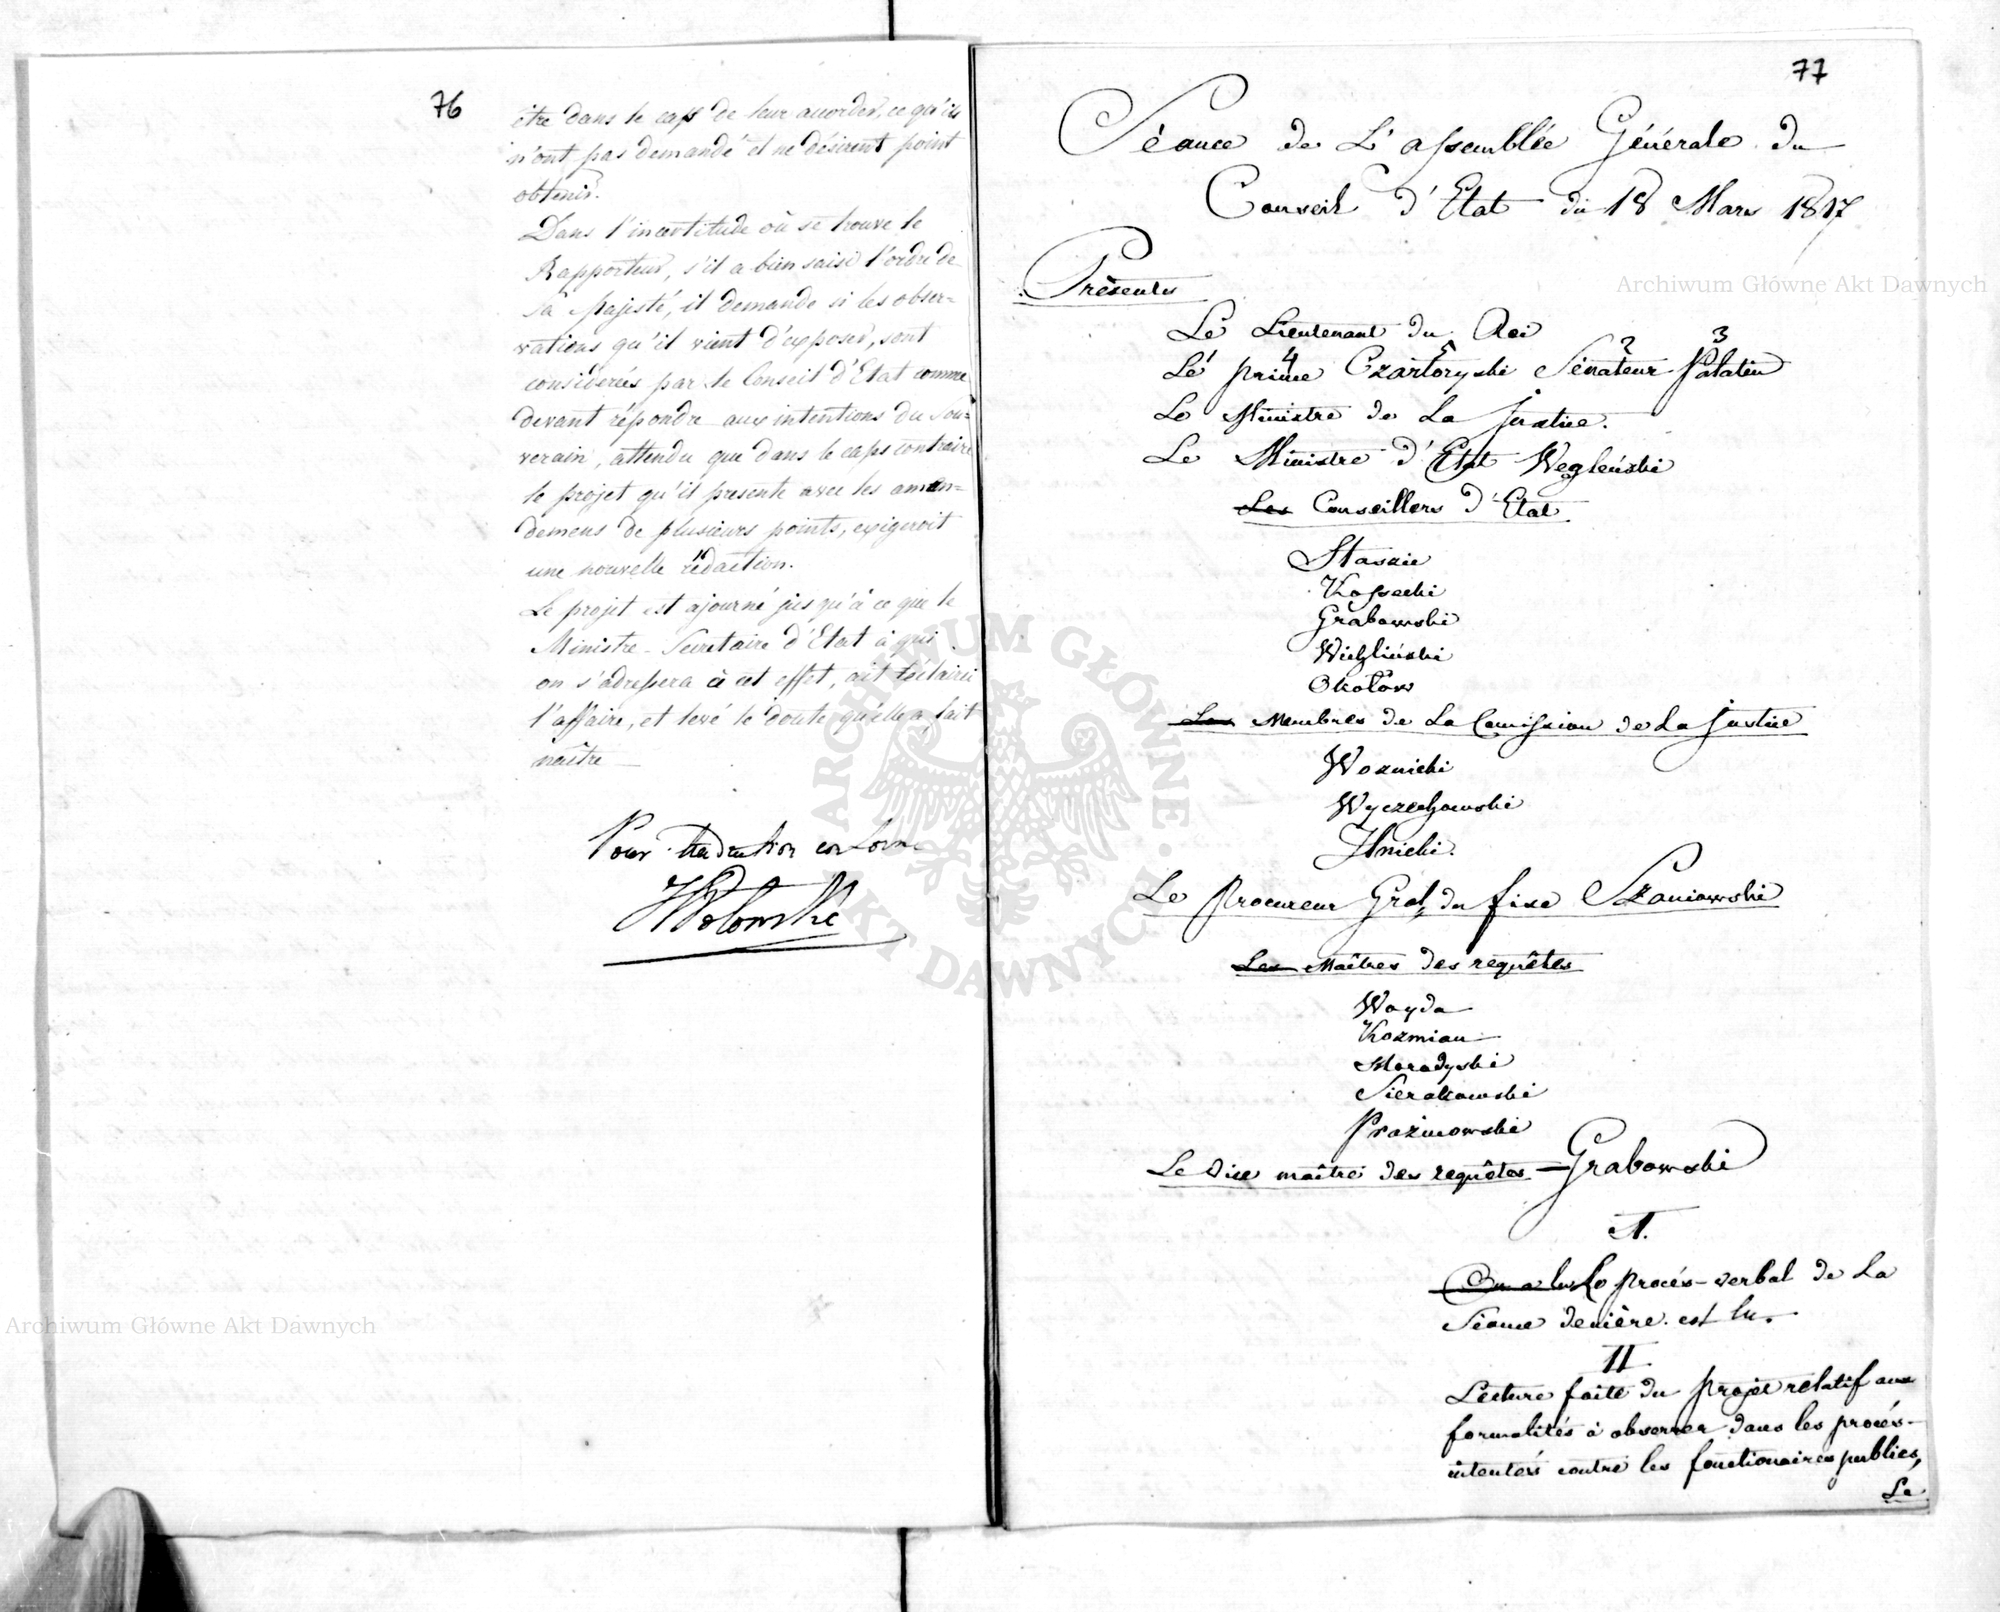 76
être dans le caſs de leur accorder, ce qu'ils
n'ont pas demandé et ne désirent point
obtenir.
Dans l'incertitude où se trouve le
Rapporteur, s'il a bien saisi l'ordre de
Sa Majesté, il demande si les obser=
vations qu'il vient d'exposer, sont
considerées par le Conseil d'Etat comme
devant répondre aux intentions du Sou=
verain, attendu que dans le caſs contraire
le projet qu'il presente avec les amen=
demens de plusieurs points, exigeroit
une nouvelle rédaction.
Le projet est ajourné jusqu'à ce que le
Ministre-Secretaire d'Etat à qui
on s'adreſsera à cet effet, ait éclairci
l'affaire, et levé le doute qu'elle a fait
naître
Pour traduction conforme
Wolowski
77
Séance de L'aſsemblée Générale du
Conseil d'Etat du 18 Mars 1817
Présents
Le Lieutenant du Roi
2 3
4 5
Le prince Czartoryski Sénateur Palatin
Le Ministre de La Justice.
Le Ministre d'Etat Węgleński
Les Conseillers d'Etat
Staszic
Koſsecki
Grabowski
Wichliński
Okołow
Les Membres de La Comiſsion de La Justice
Woznicki
Wyczechowski
Ilnicki.
Le Procureur Gral du fisc Szaniawski
Les Maîtres des requêtes
Woyda
Kozmian
Sierakowski
Prażmowski
Le Vice maître des requêtes — Grabowski
I.
On a lu Le procés-verbal de La
Séance denière est lu.
II.
Lecture faite du projet relatif aux
formalités à observer dans les procés-
intentés contre les fonctionaires publics,
Le
Archiwum Główne Akt Dawnych
Archiwum Główne Akt Dawnych
ARCHIWUM GŁÓWNE • AKT DAWNYCH •